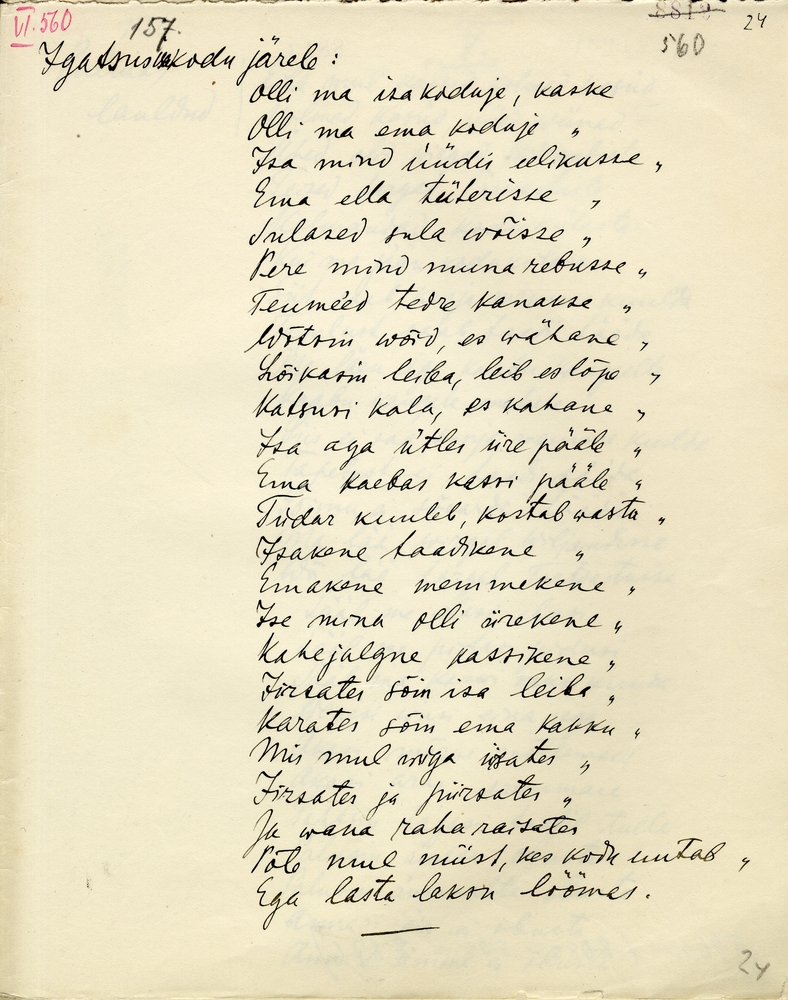 VI. 560
157.
8819
24
560
Igatsus kodu järele:
Olli ma isakoduje, kaske
Olli ma ema koduje "
Isa mind üüdis elikusse "
Ema ella tüterisse "
Sulased sula wõisse "
Pere mind muna rebusse "
Teumeed tedre kanakse "
Wõtsin wõid, es wähane "
Lõikasin leiba, leib es lõpe "
Katsusi kala, es kahane "
Isa aga ütles iire pääle "
Ema kaebas kassi pääle "
Tüdar kuuleb, kostab wasta "
Isakene taadikene "
Emakene memmekene "
Ise mina olli iirekene "
Kahejalgne kassikene "
Firsates sõin isa leiba "
Karates sõin ema kakku "
Mis mul wiga iisates "
Firsates ja piirsates "
Ja wana raha raisates
Põle mul müist, kes kodu uutab "
Ega lasta laksu löömas.
24